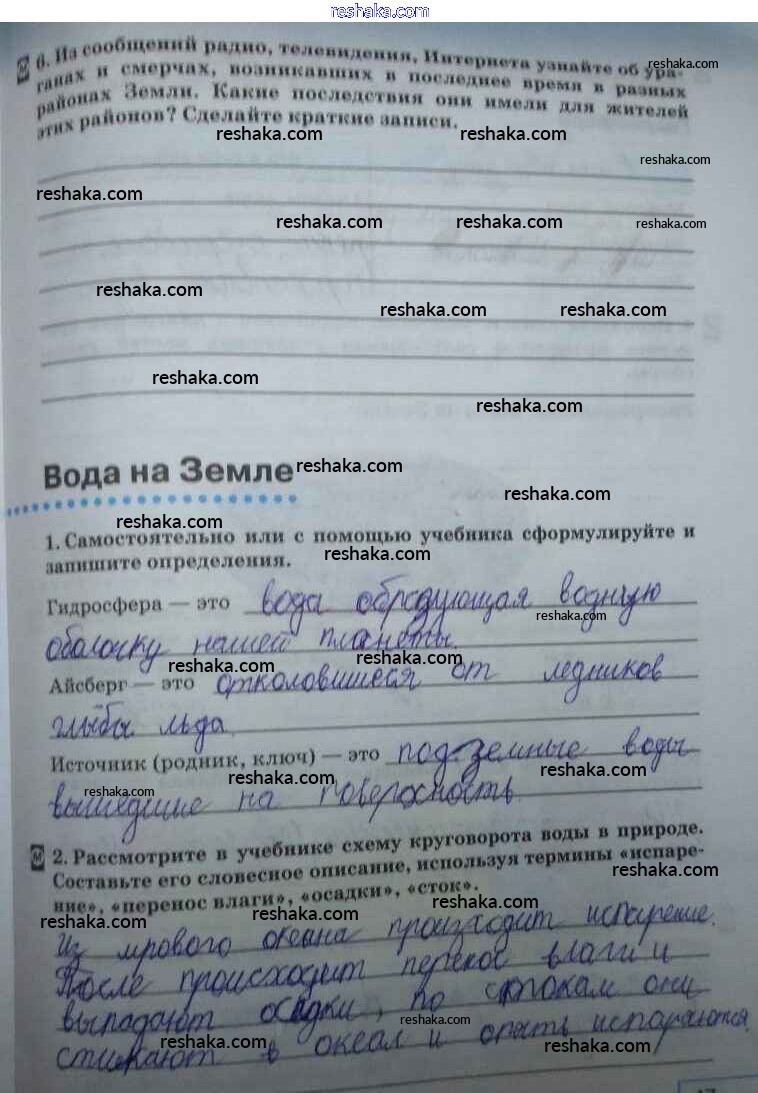 reshaka.com
6. Из сообщений радио, телевидения, Интернета узнайте об ура-
reshaka.com
ганах и смерчах, возникавших в последнее время в разных
районах Земли. Какие последствия они имели для жителей
этих районов? Сделайте краткие записи.
reshaka.com reshaka.com
reshaka.com
reshaka.com
reshaka.com reshaka.com reshaka.com
reshaka.com
reshaka.com reshaka.com
reshaka.com
reshaka.com
Вода на Земле
reshaka.com
reshaka.com
reshaka.com
1. Самостоятельно или с помощью учебника сформулируйте и
запишите определения.
reshaka.com
Гидросфера — это вода образующая водную
reshaka.com
оболочку нашей планеты.
reshaka.com reshaka.com
Айсберг — это отколовшиеся от ледников
глыбы льда
Источник (родник, ключ) — это подземные воды
reshaka.com reshaka.com
вышедшие на поверхность.
2. Рассмотрите в учебнике схему круговорота воды в природе.
Составьте его словесное описание, используя термины «испаре-
reshaka.com
ние», «перенос влаги», «осадки», «сток».
reshaka.com reshaka.com
Из мрового океана происходит испарение.
После происходит перенос влаги и
reshaka.com
выпадают осадки, по стокам они
reshaka.com
стикают в океан и опять испаряются
reshaka.com reshaka.com